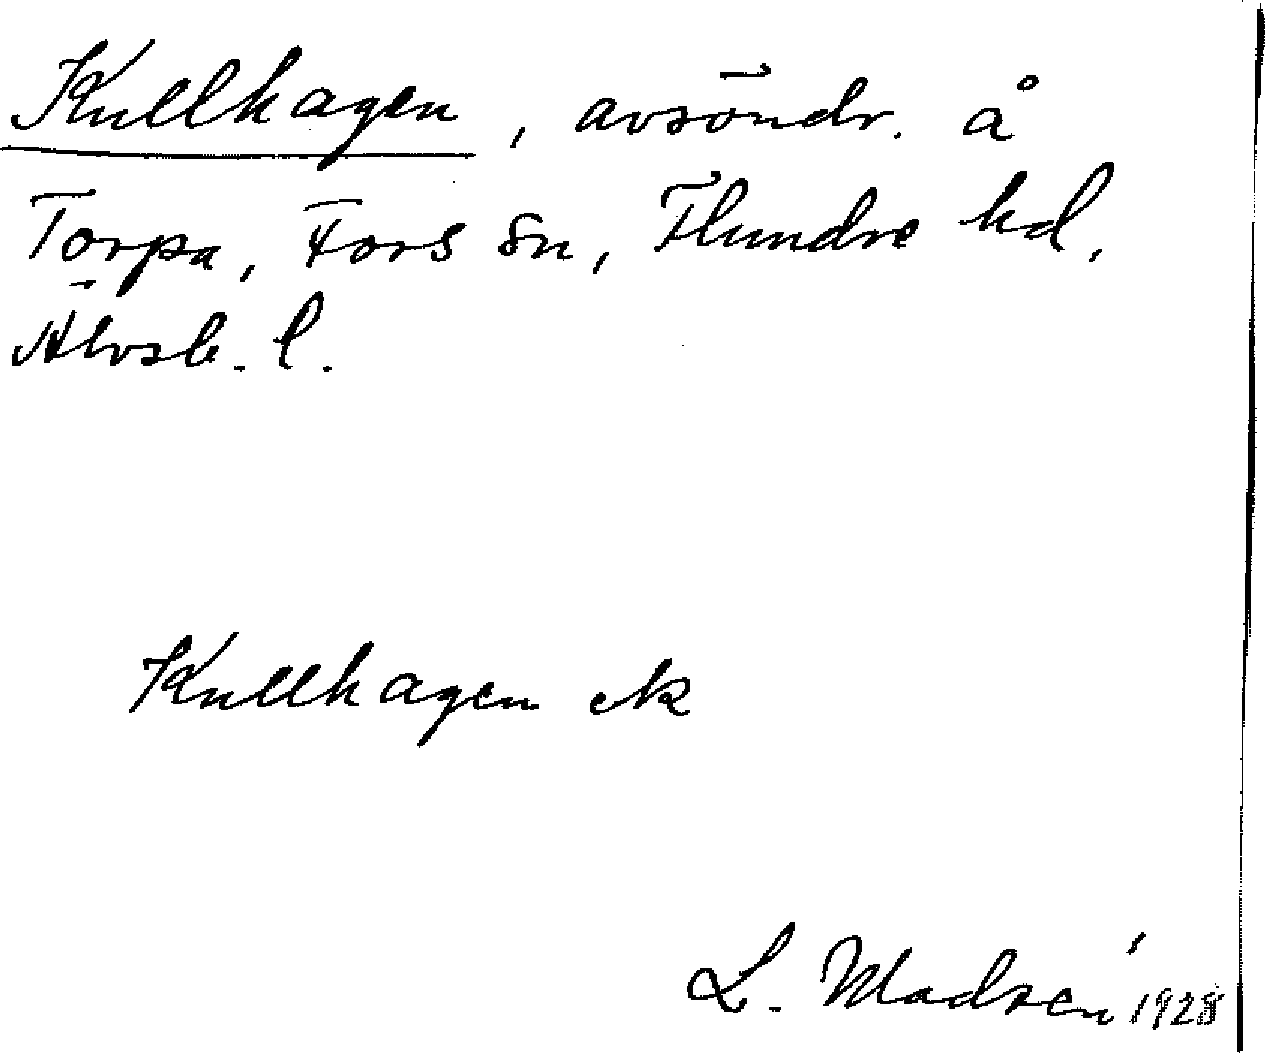 Kullhagen, avsöndr. å
Torpa, Fors sn, Flundre hd,
Älvsb. l.
Kullhagen ek
L. Madsén 1928